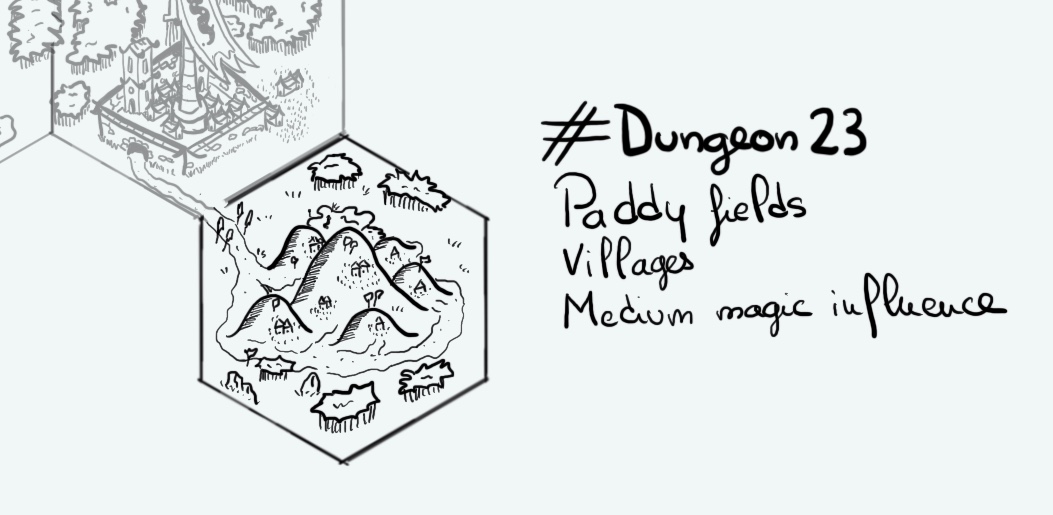 #Dungeon 23
Paddy fields
Villages
Medium magic influence